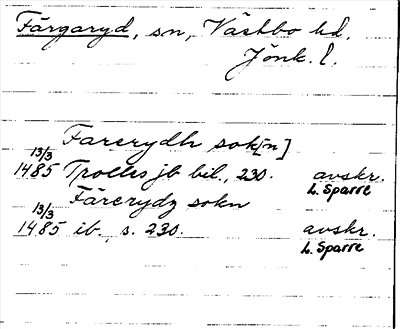 Färgaryd, sn, Västbo hd.
Jönk. l.
Farerydh sok[n]
13/3
1485 Trolles jb bil., 230. avskr.
L. Sparre
Färerydz sokn
13/3
1485 ib., s. 230. avskr.
L. Sparre